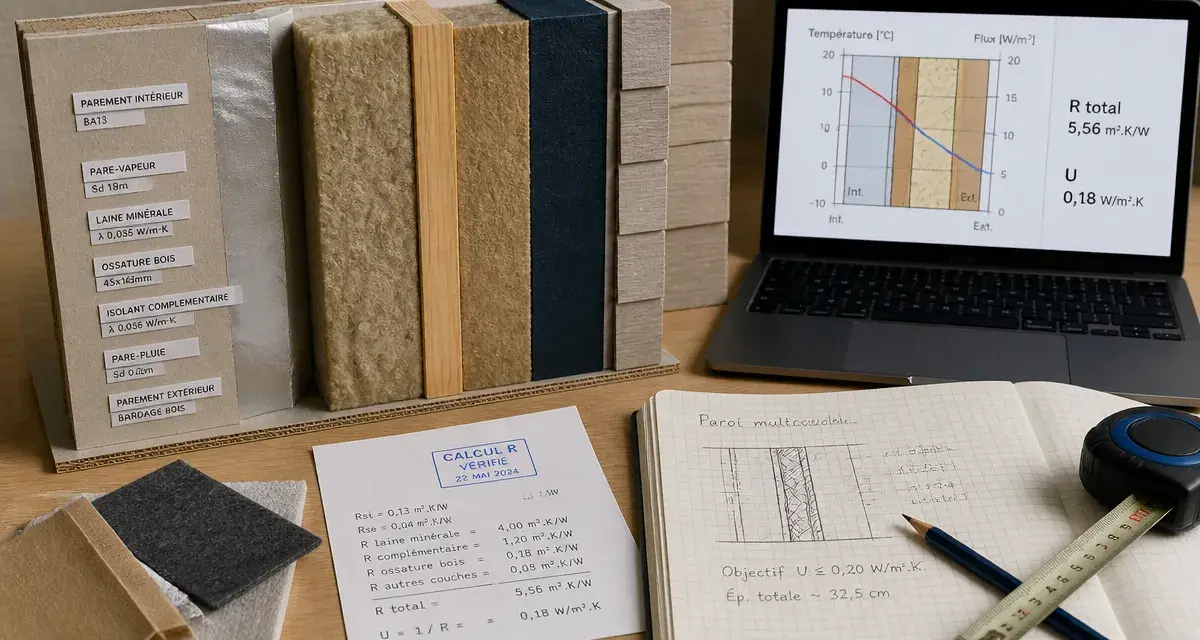 PAREMENT INTÉRIEUR
BA13
PARE-VAPEUR
Sd 18m
LAINE MINÉRALE
λ 0,035 W/m·K
OSSATURE BOIS
ISOLANT COMPLÉMENTAIRE
λ 0,036 W/m·K
PARE-PLUIE
PAREMENT EXTÉRIEUR
BARDAGE BOIS
Température [°C]
Flux [W/m²]
20
10
10
0
-10
20
15
10
5
0
Int.
Ext.
Int.
Ext.
R total
5,56 m².K/W
U
0,18 W/m².K
CALCUL R
VÉRIFIÉ
22 MAI 2024
Rsi = 0,13 m².K/W
Rse = 0,04 m².K/W
R laine minérale = 4,00 m².K/W
R complémentaire = 1,20 m².K/W
R ossature bois = 0,18 m².K/W
R autres couches = 0,08 m².K/W
R total = 5,56 m².K/W
U = 1 / R = = 0,18 W/m².K
Paroi
Objectif U ≤ 0,20 W/m².K.
Ép. totale ~ 32,5 cm.